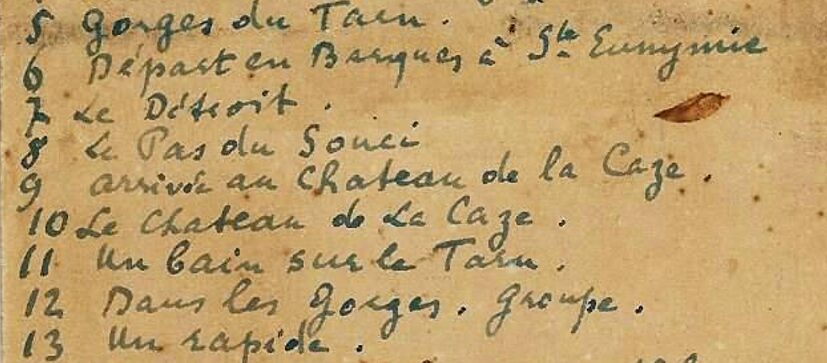 5 Gorges du Tarn.
6 Départ en Barques à Ste Ennymie
7 Le Détroit.
8 Le Pas du Souci
9 arrivée au Chateau de la Caze.
10 Le Chateau de La Caze.
11 Un bain sur le Tarn.
12 Dans les Gorges. Groupe.
13 Un rapide.